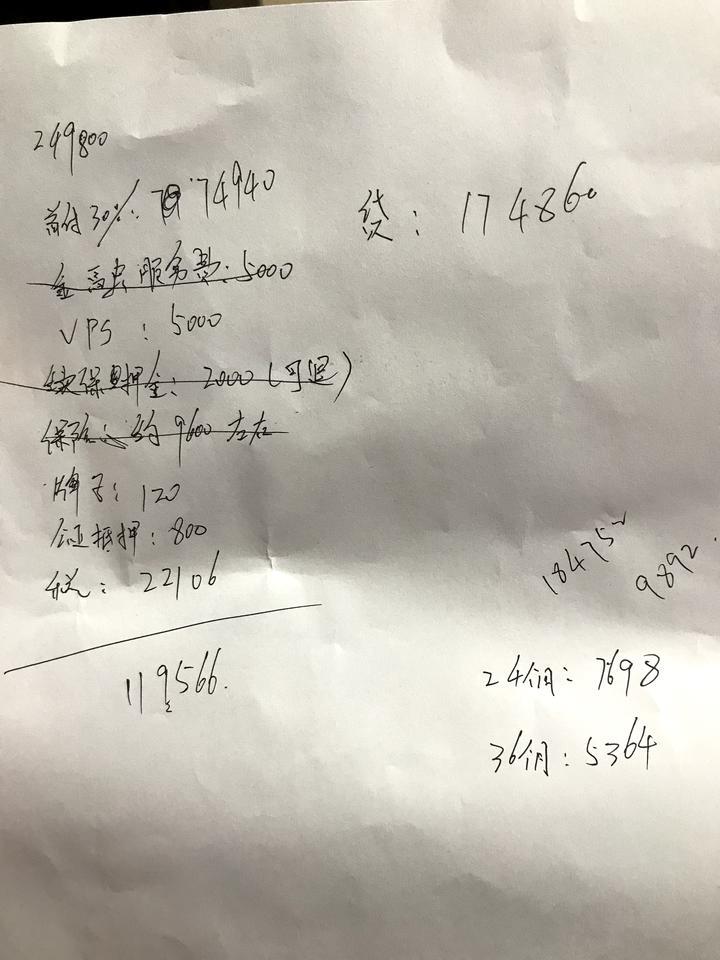 249800
首付30%: 74940
贷: 174860
金融服务费: 5000
VPS: 5000
续保押金: 2000(可退)
保险: 约9600左右
牌子: 120
证抵押: 800
税: 22106
119566.
184752
9892.
24个月: 7698
36个月: 5364